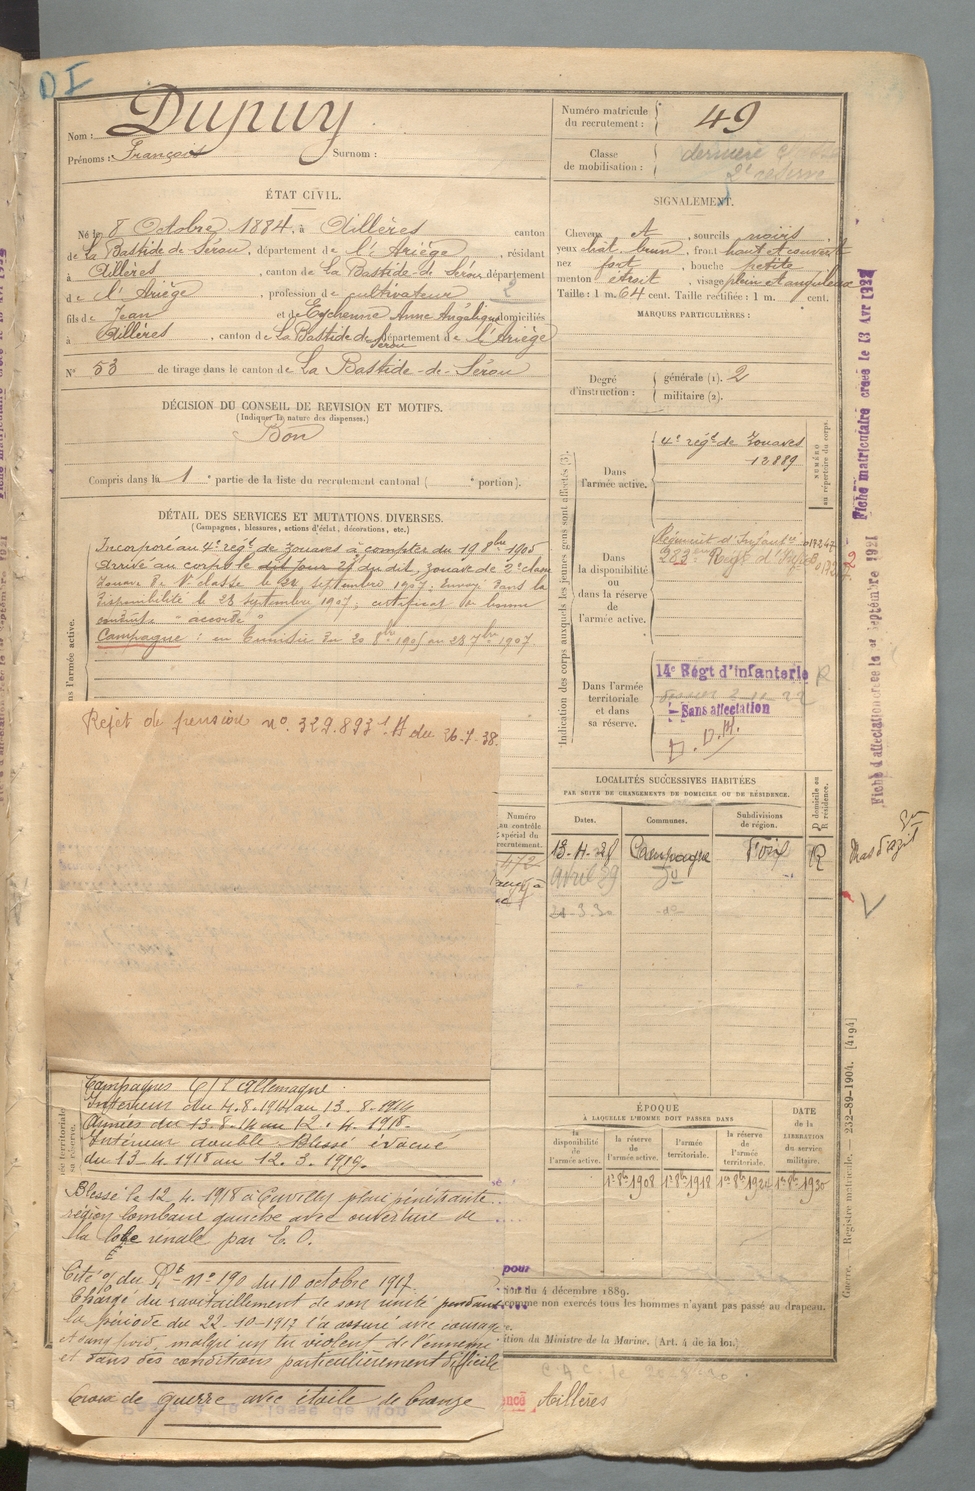 D I
Nom : Dupuy
Prénoms : François Surnom :
Numéro matricule du recrutement : 49
Classe de mobilisation : dernière
2e réserve
ÉTAT CIVIL.
Né le 8 Octobre 1884, à Aillères canton
de La Bastide-de-Sérou, département de l'Ariège, résidant
à Aillères, canton de La Bastide-de-Sérou département
de l'Ariège, profession de cultivateur
2
fils de Jean et de Eychenne Anne Angélique domiciliés
à Aillères, canton de La Bastide de Sérou département de l'Ariège
N° 53 de tirage dans le canton de La Bastide-de-Sérou
SIGNALEMENT.
Cheveux et, sourcils noirs
yeux chât brun, front haut et couvert
nez fort, bouche petite
menton étroit, visage plein et anguleux
Taille : 1 m. 64 cent. Taille rectifiée : 1 m. cent.
MARQUES PARTICULIÈRES :
Degré d'instruction : générale (1). 2
militaire (2).
DÉCISION DU CONSEIL DE REVISION ET MOTIFS.
(Indiquer la nature des dispenses.)
Bon
Compris dans la 1 e partie de la liste du recrutement cantonal ( e portion).
DÉTAIL DES SERVICES ET MUTATIONS DIVERSES.
(Campagnes, blessures, actions d'éclat, décorations, etc.)
Incorporé au 4e régt de Zouaves à compter du 19 8bre 1905
Arrivé au corps le dit jour 21 du dit, zouave de 2e classe
Zouave de 1e classe le 21 septembre 1907. Envoyé dans la
disponibilité le 28 septembre 1907, certificat de bonne
conduite "accordé"
Campagne : en Tunisie du 20 8bre 1905 au 28 7bre 1907.
ns l'armée active.
Rejet de pension n° 329.893 A du 26.7.38.
Campagnes C/ l'Allemagne.
Intérieur du 4.8.1914 au 13.8.1914
Armées du 13.8.14 au 12.4.1918.
Intérieur double Blessé évacué
du 13-4.1918 au 12.3.1919.
ée territoriale
sa réserve.
Blessé le 12 4.1918 à Cuvilly plaie pénétrante
région lombaire gauche avec ouverture de
la loge rénale par E. O.
Cité O/ du Rt n° 190 du 10 octobre 1917.
Chargé du ravitaillement de son unité pendant
la période du 22-10-1917 l'a assuré avec courage
et sang froid, malgré un tir violent de l'ennemi
et dans des conditions particulièrement difficile
Croix de guerre avec étoile de bronze
Indication des corps auxquels les jeunes gens sont affectés (3).
Dans l'armée active.
4e régt de Zouaves
12889
NUMÉRO au répertoire du corps.
Dans la disponibilité ou dans la réserve de l'armée active.
Régiment d'Infanterie
283ème Régt d'Infie
Dans l'armée territoriale et dans sa réserve.
14e Régt d'infanterie
R
Sans affectation
D. D. M.
LOCALITÉS SUCCESSIVES HABITÉES
PAR SUITE DE CHANGEMENTS DE DOMICILE OU DE RÉSIDENCE.
Dates. Communes. Subdivisions de région. D domicile ou R résidence.
13-4-28 Campagne Foix R
Avril 29 do
21-3.30 do
Mas d'Azil
Numéro au contrôle spécial du recrutement.
472
ÉPOQUE
À LAQUELLE L'HOMME DOIT PASSER DANS
la disponibilité de l'armée active. la réserve de l'armée active. l'armée territoriale. la réserve de l'armée territoriale.
DATE de la LIBÉRATION du service militaire.
1er 8bre 1908 1er 8bre 1918 1er 8bre 1924 1er 8bre 1930
pour
du 4 décembre 1889.
comme non exercés tous les hommes n'ayant pas passé au drapeau.
ition du Ministre de la Marine. (Art. 4 de la loi.)
Aillères
Fiche matriculaire créée le 13 Avr 1927
Fiche d'affectation créée le 1er Septembre 1921
Guerre. — Registre matricule. — 232-89-1904. [4194]